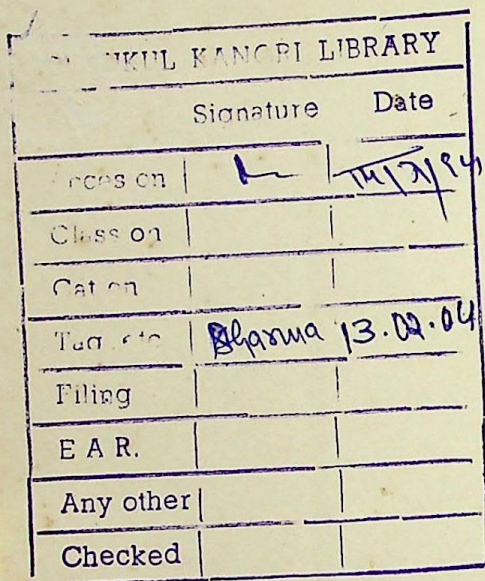 UKUL KANGRI LIBRARY
Signature Date
cces on
Class on
Cat on
Tag etc Sharma 13.02.04
Filing
E A R.
Any other
Checked